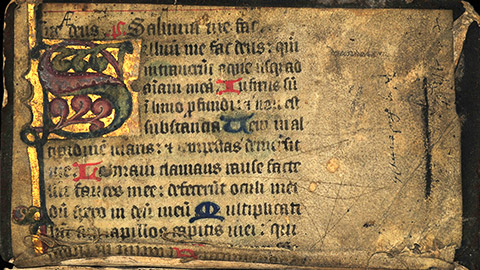 deus. Saluum me fac
Saluum me fac deus: qm̄
intrauerūt aque usq̄ ad
aīam meā Infixus sū
ī limo profundi: ⁊ non est
substantia Veni in al
titudinem maris: ⁊ tempestas demersit
me Laboraui clamans rause facte
sūt fauces mee: defecerūt oculi mei
dū spero in deū meū Multiplicati
sūt capillos capitis mei: qui